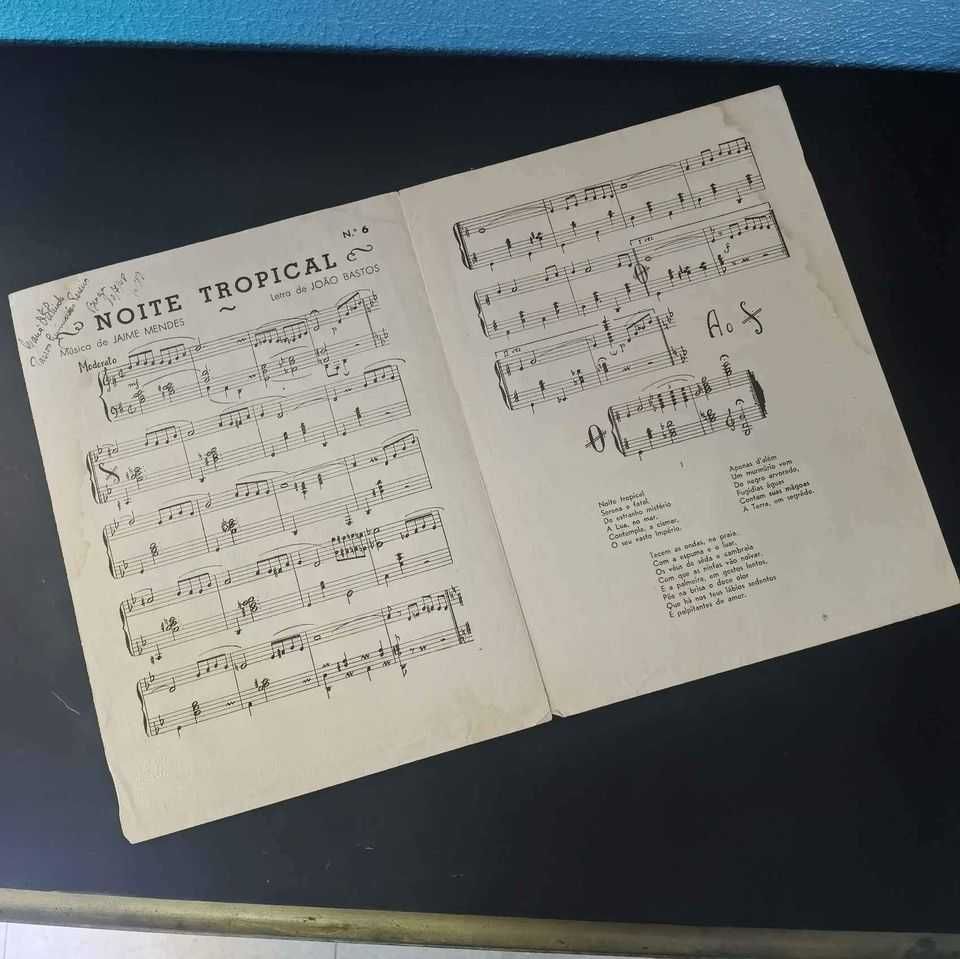 N.º 6
NOITE TROPICAL
Letra de JOÃO BASTOS
Música de JAIME MENDES
Moderato
mf
p
1.ª vez
f
2.ª vez
p
Ao
1
Noite tropical,
Serena e fatal,
De estranho mistério
A Lua, no mar,
Contempla, a cismar,
O seu vasto Império.
Aponas d'além
Um murmúrio vem
Do negro arvoredo,
Fugidias águas
Contam suas mágoas
À Terra, em segrêdo.
Tecem as ondas, na praia,
Com a espuma e o luar,
Os véus de sêda e cambraia
Com que as ninfas vão noivar.
E a palmeira, em gestos lentos,
Põe na brisa o doce olor
Que há nos teus lábios sedentos
E palpitantes de amor.